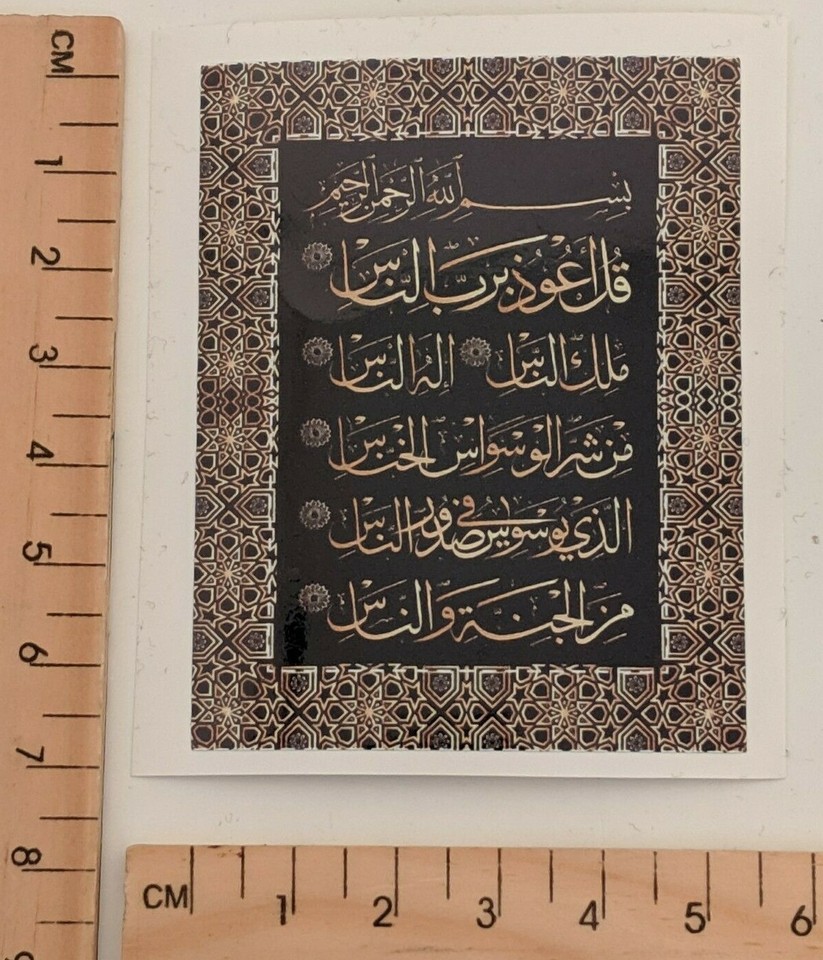 بِسْمِ اللهِ الرَّحْمٰنِ الرَّحِيْمِ
قُلْ أَعُوْذُ بِرَبِّ النَّاسِ
مَلِكِ النَّاسِ اِلٰهِ النَّاسِ
مِنْ شَرِّ الْوَسْوَاسِ الْخَنَّاسِ
الَّذِيْ يُوَسْوِسُ فِيْ صُدُوْرِ النَّاسِ
مِنَ الْجِنَّةِ وَالنَّاسِ
CM
1
2
3
4
5
6
7
8
CM 1 2 3 4 5 6